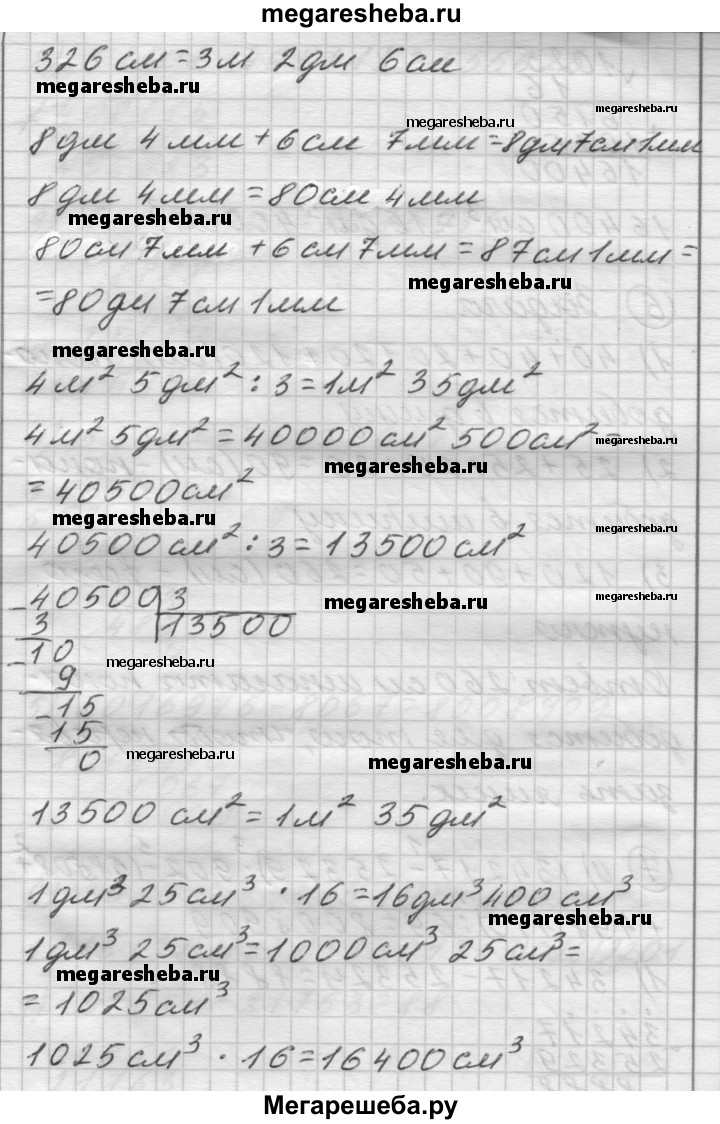 megaresheba.ru
326 см = 3 м 2 дм 6 см
megaresheba.ru
megaresheba.ru
megaresheba.ru
8 дм 4 мм + 6 см 7 мм = 8 дм 7 см 1 мм
8 дм 4 мм = 80 см 4 мм
megaresheba.ru
80 см 7 мм + 6 см 7 мм = 87 см 1 мм =
megaresheba.ru
= 80 дм 7 см 1 мм
megaresheba.ru
4 м² 5 дм² : 3 = 1 м² 35 дм²
4 м² 5 дм² = 40000 см² 500 см² =
megaresheba.ru
= 40500 см²
megaresheba.ru
megaresheba.ru
40500 см² : 3 = 13500 см²
- 40500 | 3
3 13500
megaresheba.ru
megaresheba.ru
- 10
megaresheba.ru
9
- 15
15
0
megaresheba.ru
megaresheba.ru
13500 см² = 1 м² 35 дм²
1 дм³ 25 см³ · 16 = 16 дм³ 400 см³
megaresheba.ru
1 дм³ 25 см³ = 1000 см³ 25 см³ =
megaresheba.ru
= 1025 см³
1025 см³ · 16 = 16400 см³
Мегарешеба.ру